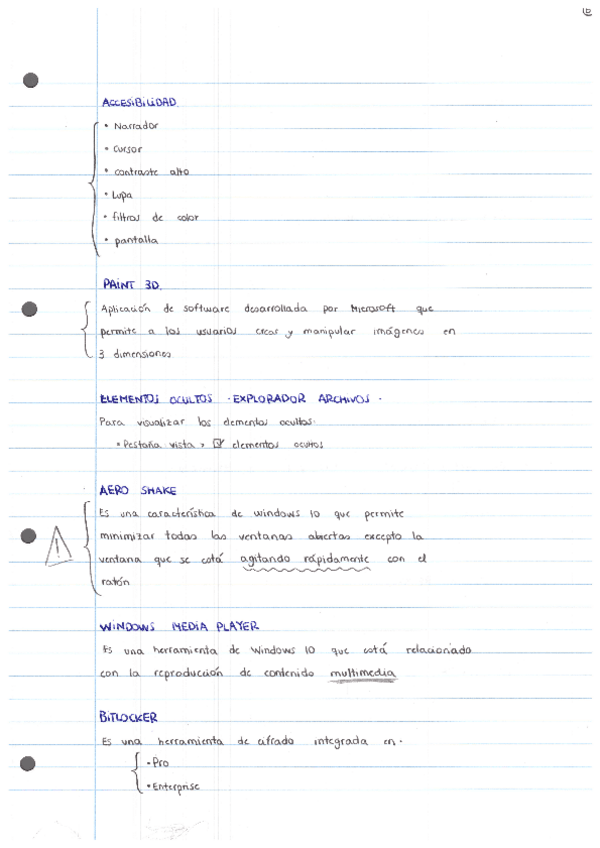 ACCESIBILIDAD
• Narrador
• cursor
• contraste alto
• Lupa
• filtros de color
• pantalla
PAINT 3D.
Aplicación de software desarrollada por Microsoft que
permite a los usuarios crear y manipular imágenes en
3 dimensiones
ELEMENTOS OCULTOS · EXPLORADOR ARCHIVOS ·
Para visualizar los elementos ocultos·
• Pestaña vista > ☑ elementos ocultos
AERO SHAKE
Es una característica de windows 10 que permite
minimizar todas las ventanas abiertas excepto la
ventana que se está agitando rápidamente con el
ratón
WINDOWS MEDIA PLAYER
Es una herramienta de Windows 10 que está relacionado
con la reproducción de contenido multimedia
BITLOCKER
Es una herramienta de cifrado integrada en·
• Pro
• Enterprise